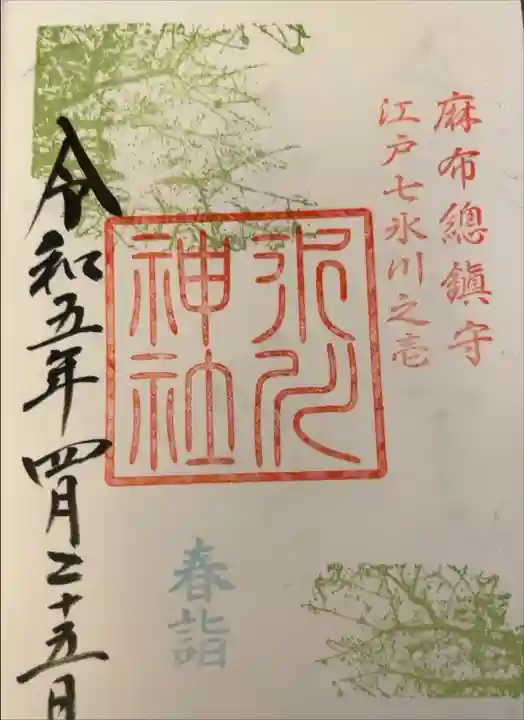 麻布總鎮守
江戸七氷川之壱
氷川
神社
春詣
令和五年四月二十五日